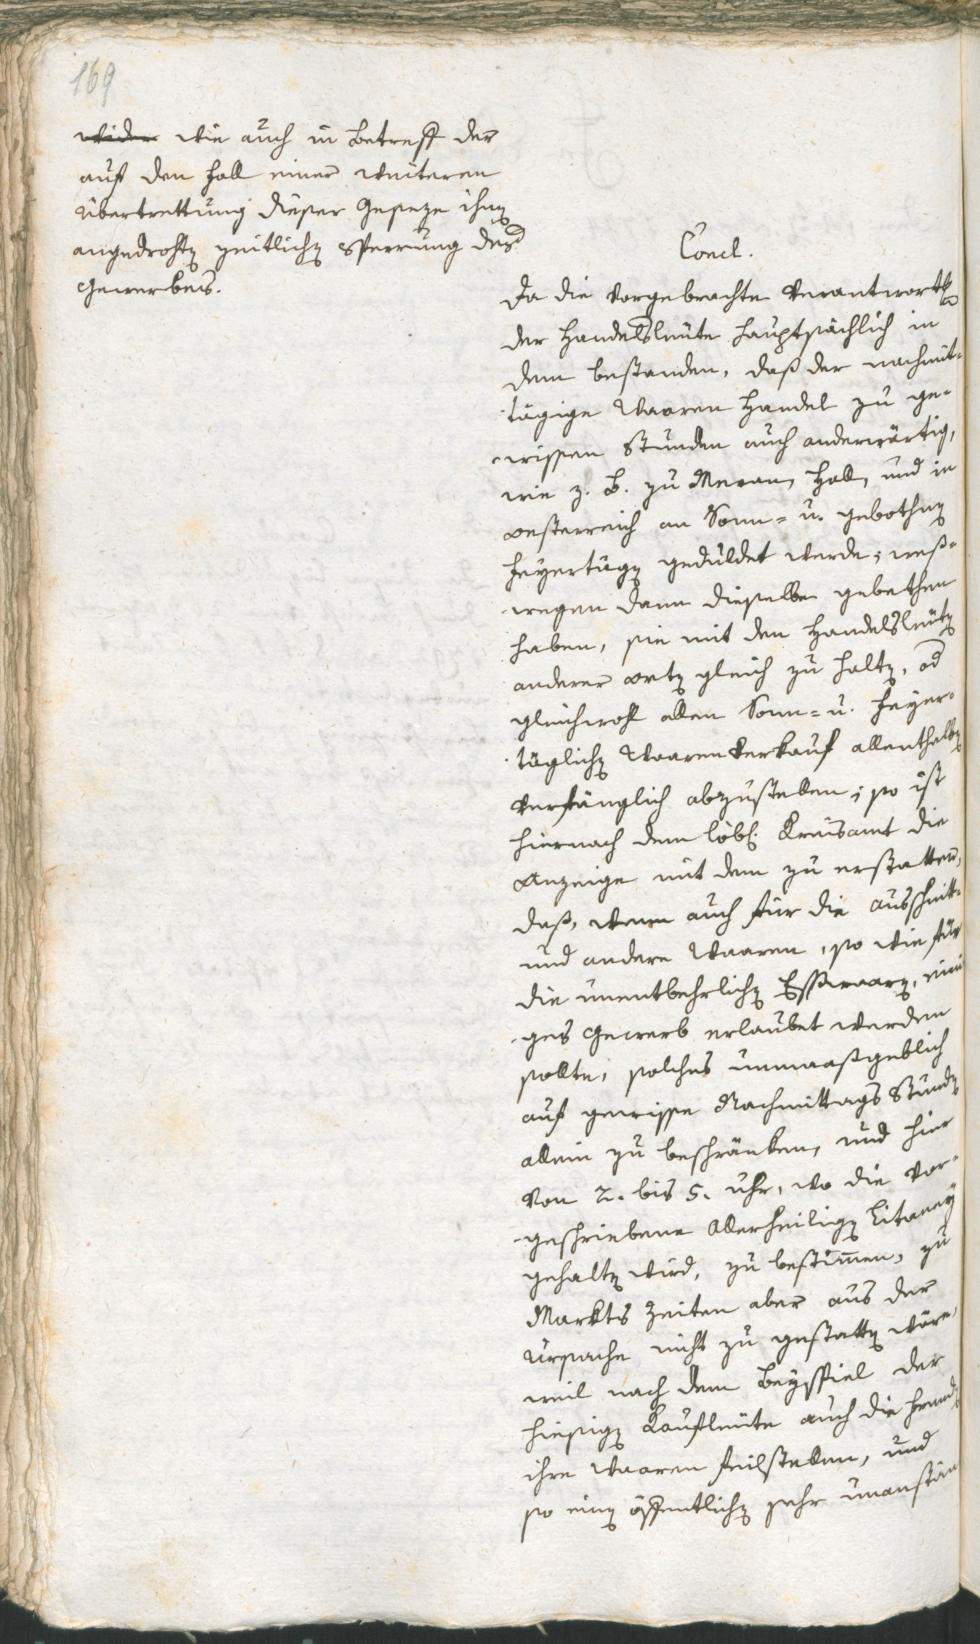 169
wider wie auch in Betreff der
auf den Fall einer weiteren
Übertrettung dieser Geseze ihnen
angedrohten zeitlichen Sperrung des
Gewerbes.
Concl.
Da die vorgebrachte Verantwort
der Handelsleüte hauptsächlich in
dem bestanden, daß der nachmit-
tägige Waaren Handel zu ge-
wissen Stunden auch anderwärtig,
wie z. B. zu Meran, Hall, und in
Oesterreich an Sonn- u. gebothnen
Feyertägen geduldet werde; weß-
wegen dann dieselbe gebethen
haben, sie mit den Handelsleüten
anderer Orten gleich zu halten, od
gleichwohl allen Sonn- u. Feyer-
täglichen Waarenverkauf allenthalben
verfänglich abzustellen; so ist
hiernach dem löbl. Kreisamt die
Anzeige mit dem zu erstatten,
daß, wenn auch für die Ausschnitt-
und andere Waaren, so wie für
die unentbehrlichen Eßwaaren, eini
ges Gewerb erlaubet werden
sollte, solches unmaaßgeblich
auf gewisse Nachmittags Stunden
allein zu beschränken, und hier
von 2. bis 5. Uhr, wo die vor-
geschriebene Allerheiligen Litaney
gehalten wird, zu bestimmen, zu
Markts Zeiten aber aus der
Ursache nicht zu gestatten wäre,
weil nach dem Beyspiel der
hiesigen Kaufleüte auch die Fremden
ihre Waaren feilstellen, und
so einen öffentlichen sehr unanstän